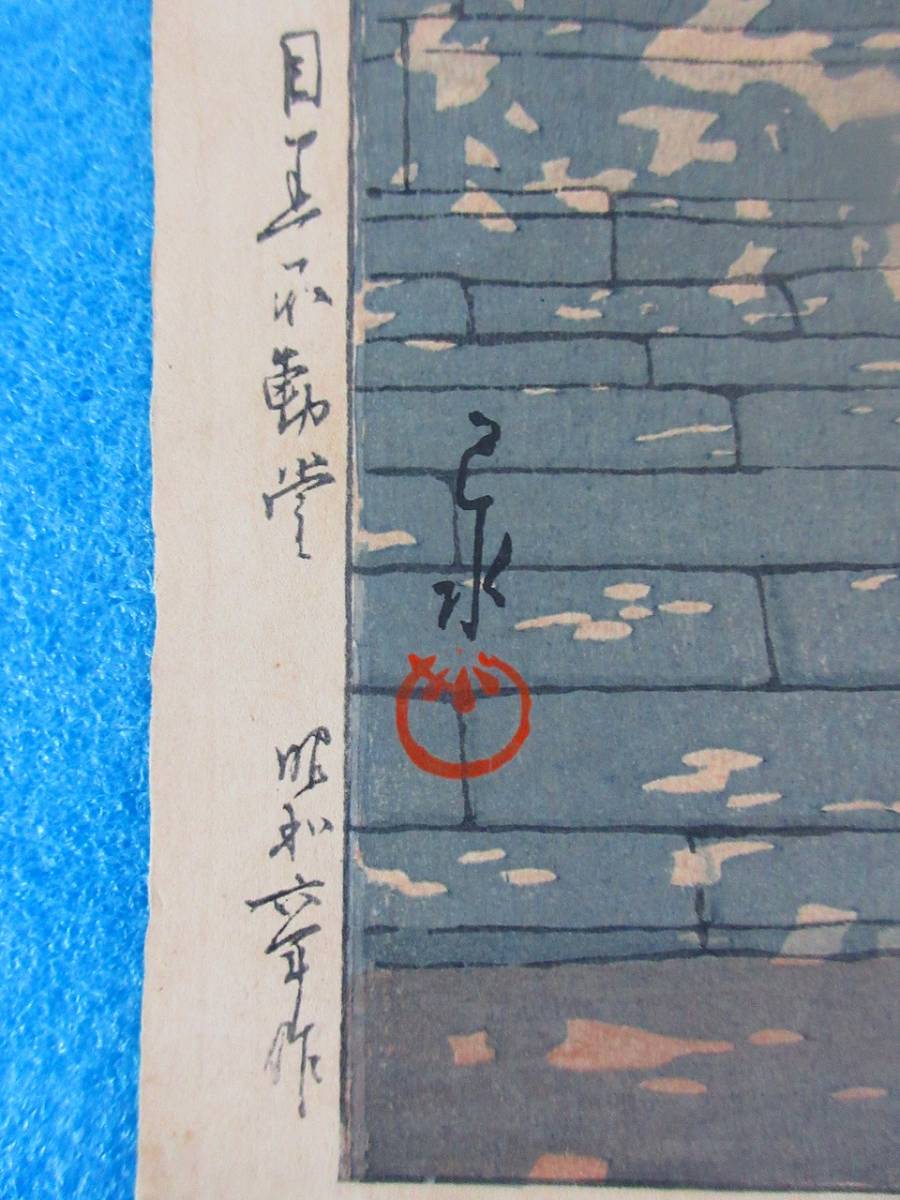 目黒不動堂 昭和六年作
巴水